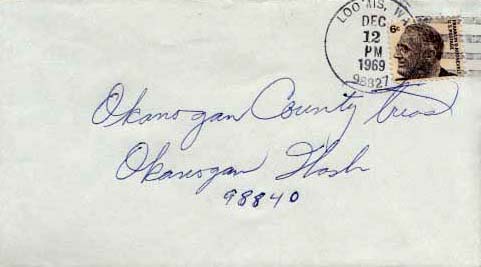 LOOMIS, WA
DEC
12
PM
1969
98827
6¢
Okanogan County Treas
Okanogan Wash
98840